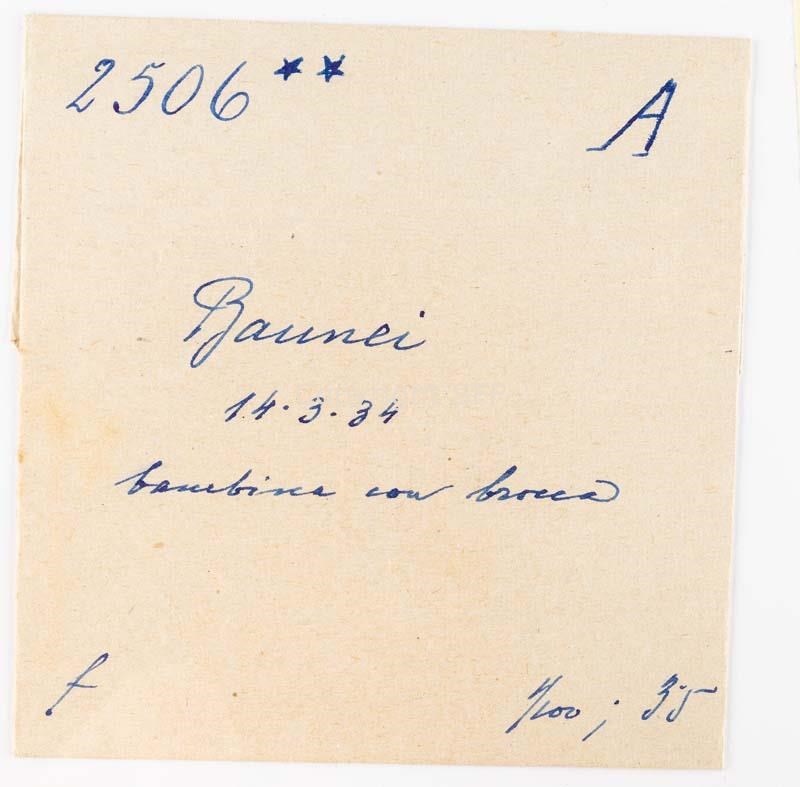 2506 ** A
Baunei
14.3.34
bambina con brocca
f
1/100 ; 3.5